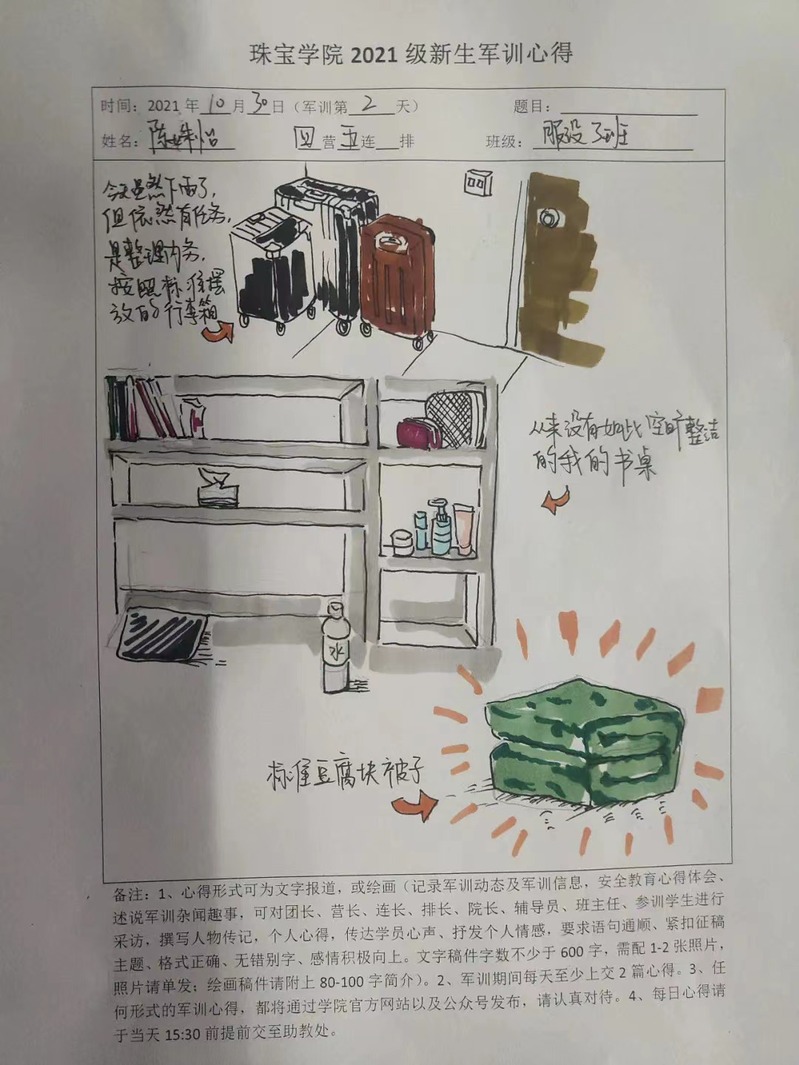 珠宝学院 2021 级新生军训心得
时间：2021 年 10 月 30 日（军训第 2 天） 题目：
姓名：陈姝怡 四 营 五 连 排 班级：服设3班
今天虽然下雨了，
但依然有任务，
是整理内务，
按照标准摆
放的行李箱
从来没有如此空旷整洁
的我的书桌
水
标准豆腐块被子
备注：1、心得形式可为文字报道，或绘画（记录军训动态及军训信息，安全教育心得体会、
述说军训杂闻趣事，可对团长、营长、连长、排长、院长、辅导员、班主任、参训学生进行
采访，撰写人物传记，个人心得，传达学员心声、抒发个人情感，要求语句通顺、紧扣征稿
主题、格式正确、无错别字、感情积极向上。文字稿件字数不少于 600 字，需配 1-2 张照片，
照片请单发；绘画稿件请附上 80-100 字简介）。2、军训期间每天至少上交 2 篇心得。3、任
何形式的军训心得，都将通过学院官方网站以及公众号发布，请认真对待。4、每日心得请
于当天 15:30 前提前交至助教处。